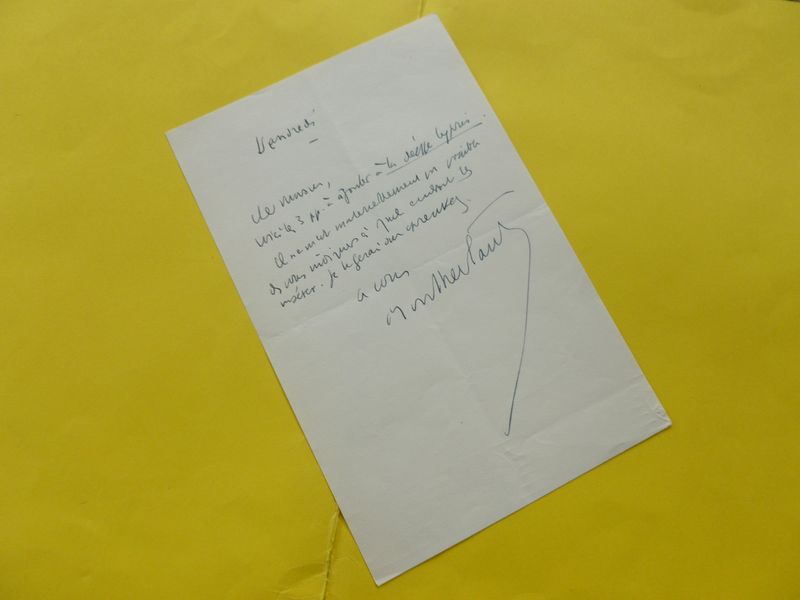 Vendredi
Cher Monsieur,
Voici les 3 pp. à ajouter à la déesse Cypris.
Il ne m'est matériellement pas possible
de vous indiquer à quel endroit les
insérer. Je le ferai sur épreuves.
à vous
Montherlant